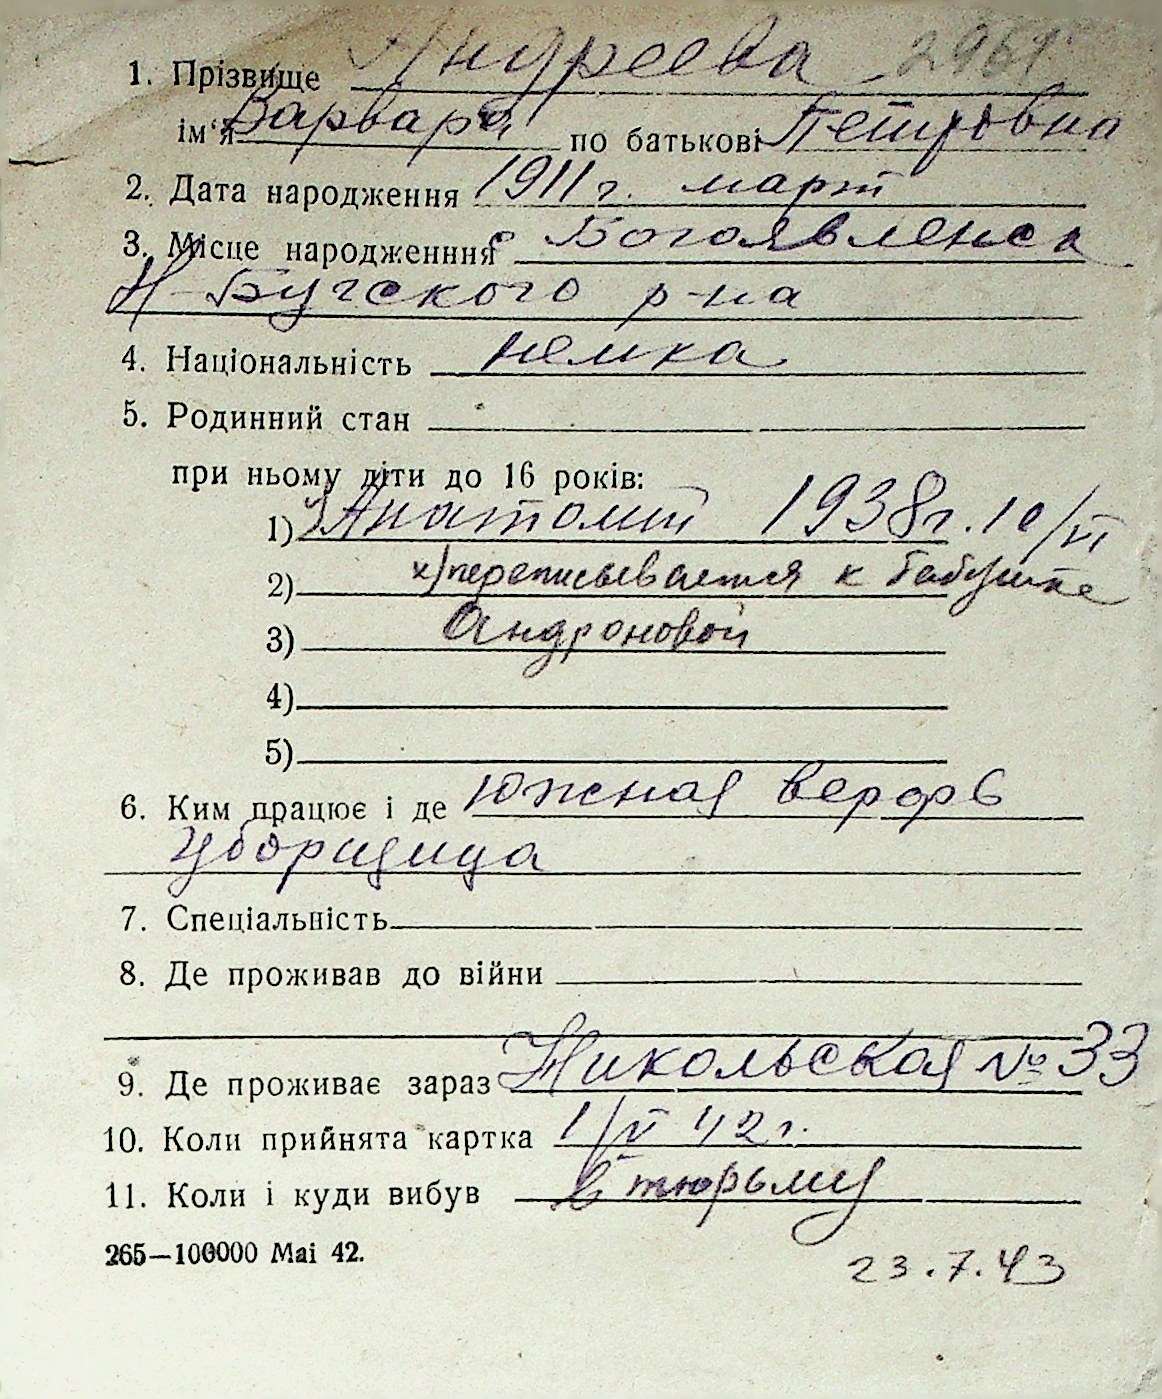 1. Прізвище Андреева 2961
ім'я Варвара по батькові Петровна
2. Дата народження 1911 г. март
3. Місце народженння с Богоявленск
Н-Бугского р-на
4. Національність немка
5. Родинний стан
при ньому діти до 16 років:
1) х) Анатолий 1938 г. 10/VI
2) х) переписывается к бабушке
3) Андроновой
4)
5)
6. Ким працює і де Южная верфь
Уборщица
7. Спеціальність
8. Де проживав до війни
9. Де проживає зараз Никольская № 33
10. Коли прийнята картка 1/V 42 г.
11. Коли і куди вибув в тюрьму
265—100000 Маі 42.
23.7.43